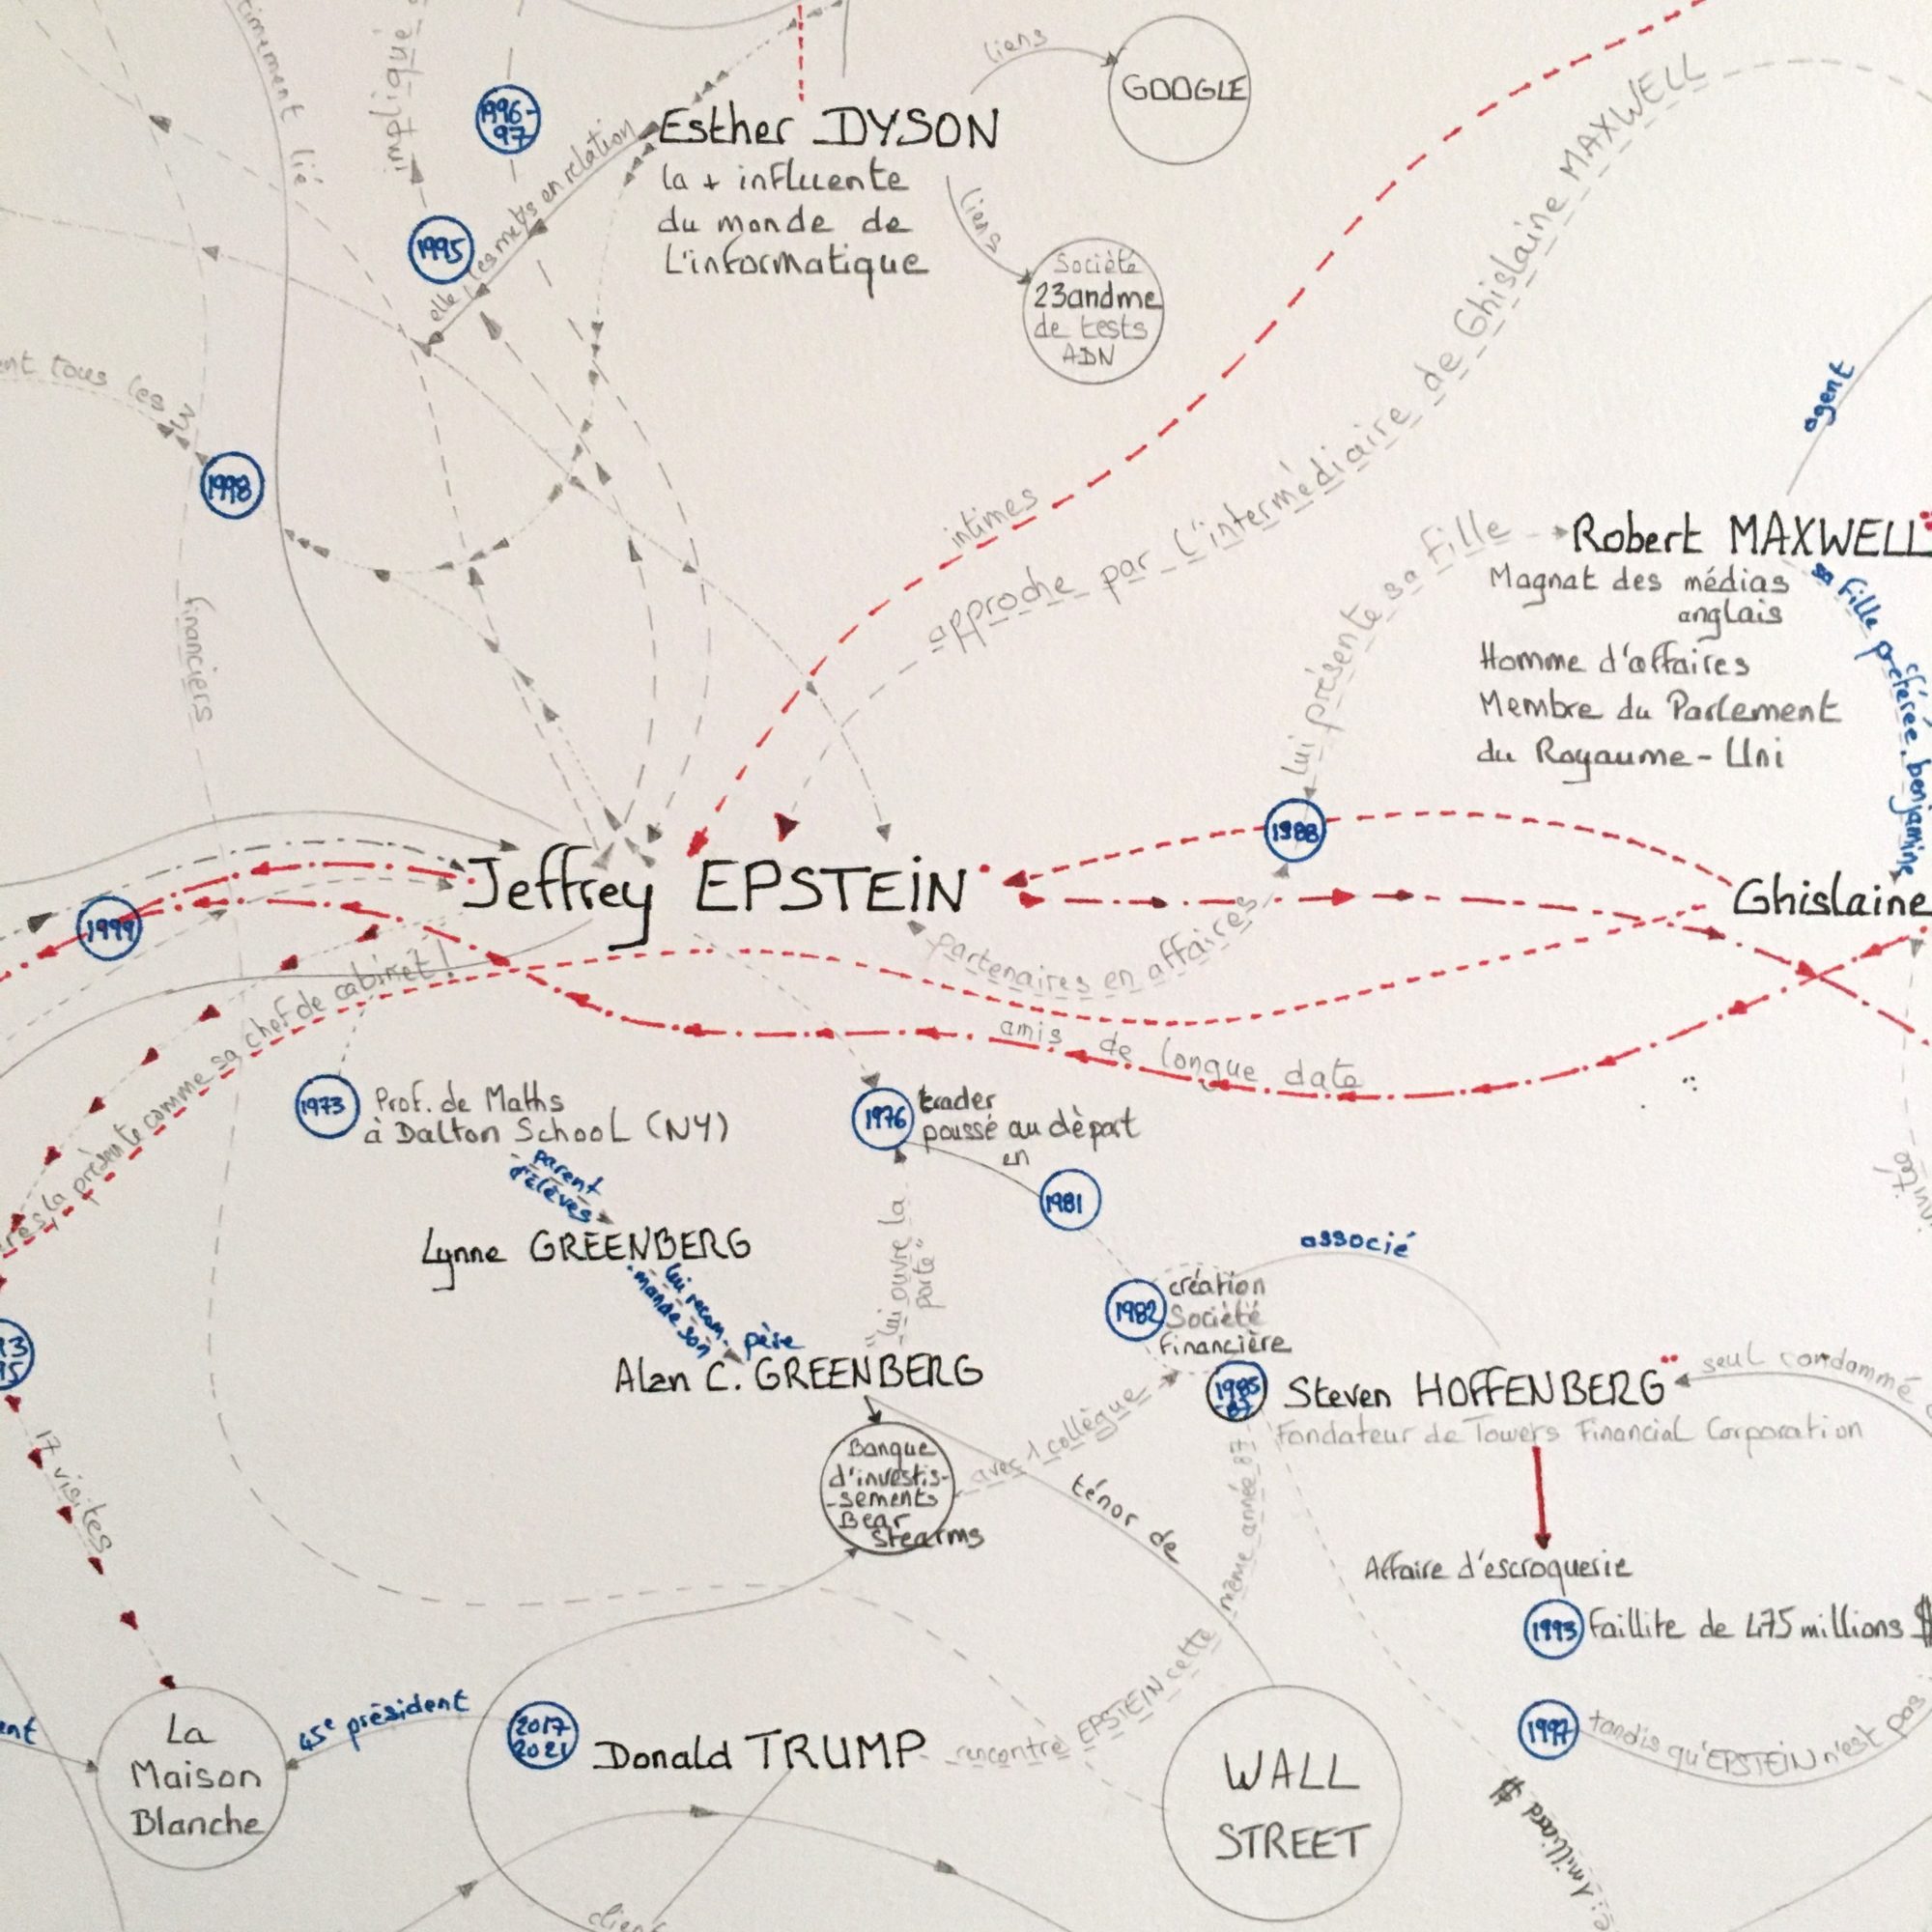 timement lié
implique
1996-
97
liens
GOOGLE
Esther DYSON
la + influente
du monde de
L'informatique
elle les mets en relation
1995
liens
Société
23andme
de tests
ADN
ent tous les 3
1998
financiers
intimes
approche par L'intermédiaire de Ghislaine MAXWELL
agent
Robert MAXWELL
Magnat des médias
anglais
Homme d'affaires
Membre du Parlement
du Royaume-Uni
sa fille préférée, benjamine
lui présente sa fille
1988
Jeffrey EPSTEIN
Ghislaine
1999
partenaires en affaires
amis de longue date
la présente comme sa chef de cabinet!
1973
Prof. de Maths
à Dalton School (NY)
1976
trader
poussé au départ
en
1981
parent
d'élèves
Lynne GREENBERG
lui recom-
mande son père
"lui ouvre la
porte"
Alan C. GREENBERG
associé
1982
création
Société
financière
1985
87
Steven HOFFENBERG
Fondateur de Towers Financial Corporation
seul condamné
Banque
d'investis-
-sements
Bear
Stearms
avec 1 collègue
ténor de
17 visites
Affaire d'escroquerie
1993 Faillite de 475 millions $
1997 tandis qu'EPSTEIN n'est pas
La
Maison
Blanche
45e président
2017
2021
Donald TRUMP
rencontre EPSTEIN cette même année 87
WALL
STREET
client